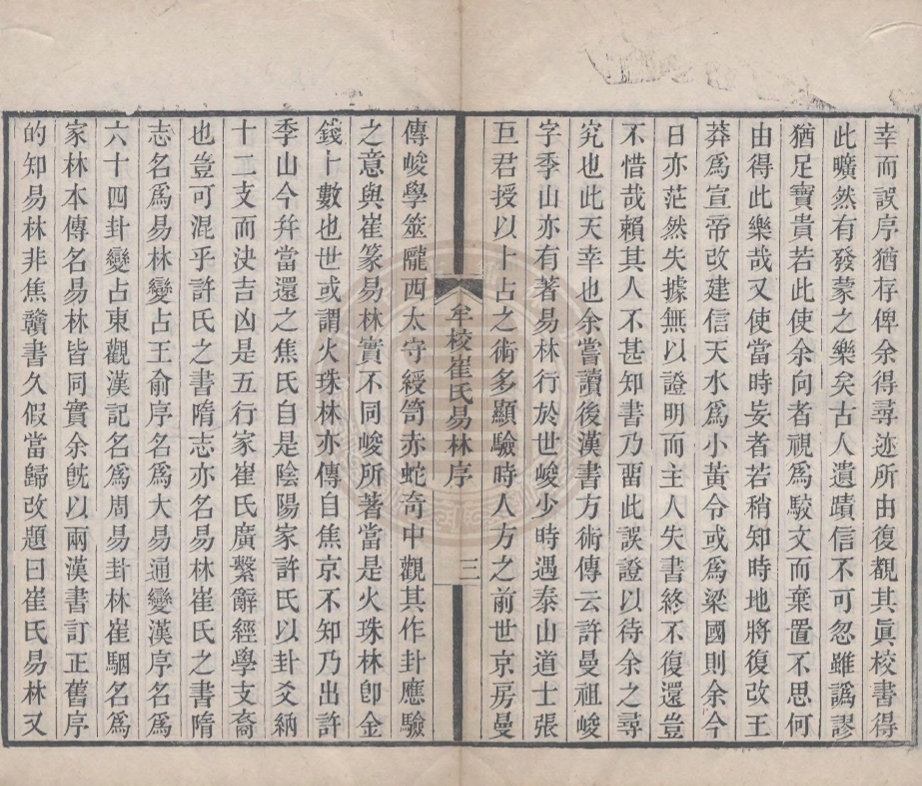 幸而誤序猶存俾余得尋迹所由復覩其眞校書得
此曠然有發蒙之樂矣古人遺蹟信不可忽雖譌謬
猶足寶貴若此使余向者視爲駮文而棄置不思何
由得此樂哉又使當時妄者若稍知時地將復改王
莽爲宣帝改建信天水爲小黃令或爲梁國則余今
日亦茫然失據無以證明而主人失書終不復還豈
不惜哉賴其人不甚知書乃畱此誤證以待余之尋
究也此天幸也余嘗讀後漢書方術傳云許曼祖峻
字季山亦有著易林行於世峻少時遇泰山道士張
巨君授以卜占之術多顯驗時人方之前世京房曼
牟校崔氏易林序
三
傳峻學筮隴西太守綬笥赤蛇奇中觀其作卦應驗
之意與崔篆易林實不同峻所著當是火珠林卽金
錢卜數也世或謂火珠林亦傳自焦京不知乃出許
季山今幷當還之焦氏自是陰陽家許氏以卦爻納
十二支而決吉凶是五行家崔氏廣繫辭經學支裔
也豈可混乎許氏之書隋志亦名易林崔氏之書隋
志名爲易林變占王俞序名爲大易通變漢序名爲
六十四卦變占東觀漢記名爲周易卦林崔駰名爲
家林本傳名易林皆同實余旣以兩漢書訂正舊序
的知易林非焦贛書久假當歸改題曰崔氏易林又